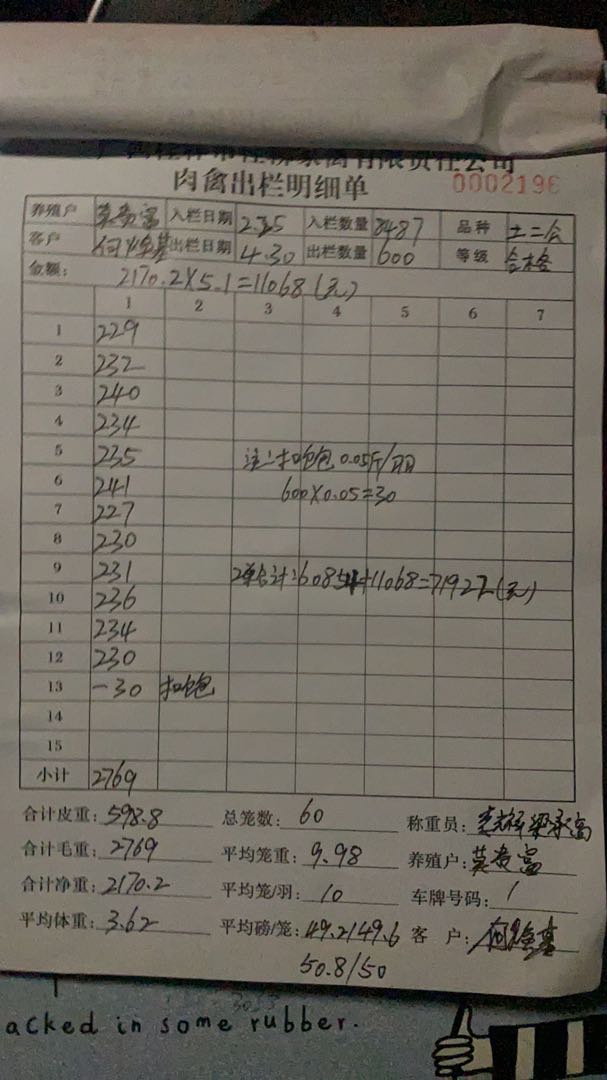 肉禽出栏明细单 0002196
养殖户 莫贵富 入栏日期 2.25 入栏数量 8487 品种 土二公
客户 出栏日期 4.30 出栏数量 600 等级 合格
金额: 2170.2×5.1=11068(元)
1 2 3 4 5 6 7
1 229
2 232
3 240
4 234
5 235 注:扣吃包0.05斤/羽
6 241 600×0.05=30
7 227
8 230
9 231 2单合计:60854+11068=71922(元)
10 236
11 234
12 230
13 -30 扣吃包
14
15
小计 2769
合计皮重: 598.8 总笼数: 60 称重员:
合计毛重: 2769 平均笼重: 9.98 养殖户: 莫贵富
合计净重: 2170.2 平均笼/羽: 10 车牌号码: /
平均体重: 3.62 平均磅/笼: 49.2/49.6 客 户:
50.8/50
acked in some rubber.